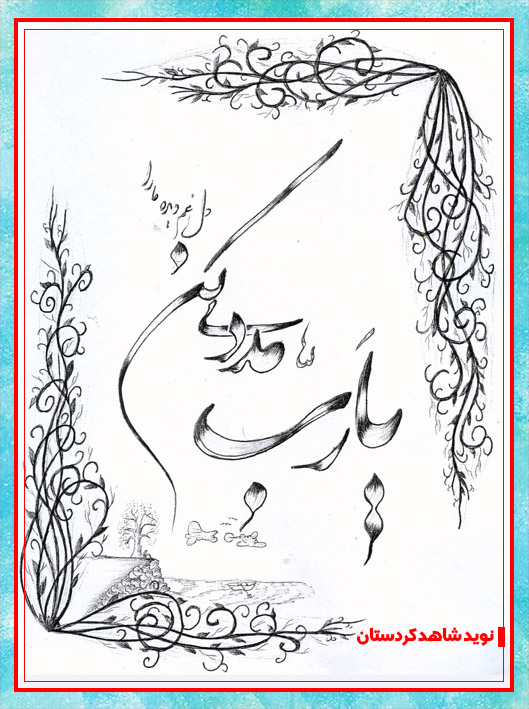 یارب
مددی کن
دل غمدیده ما را
نوید شاهد کردستان